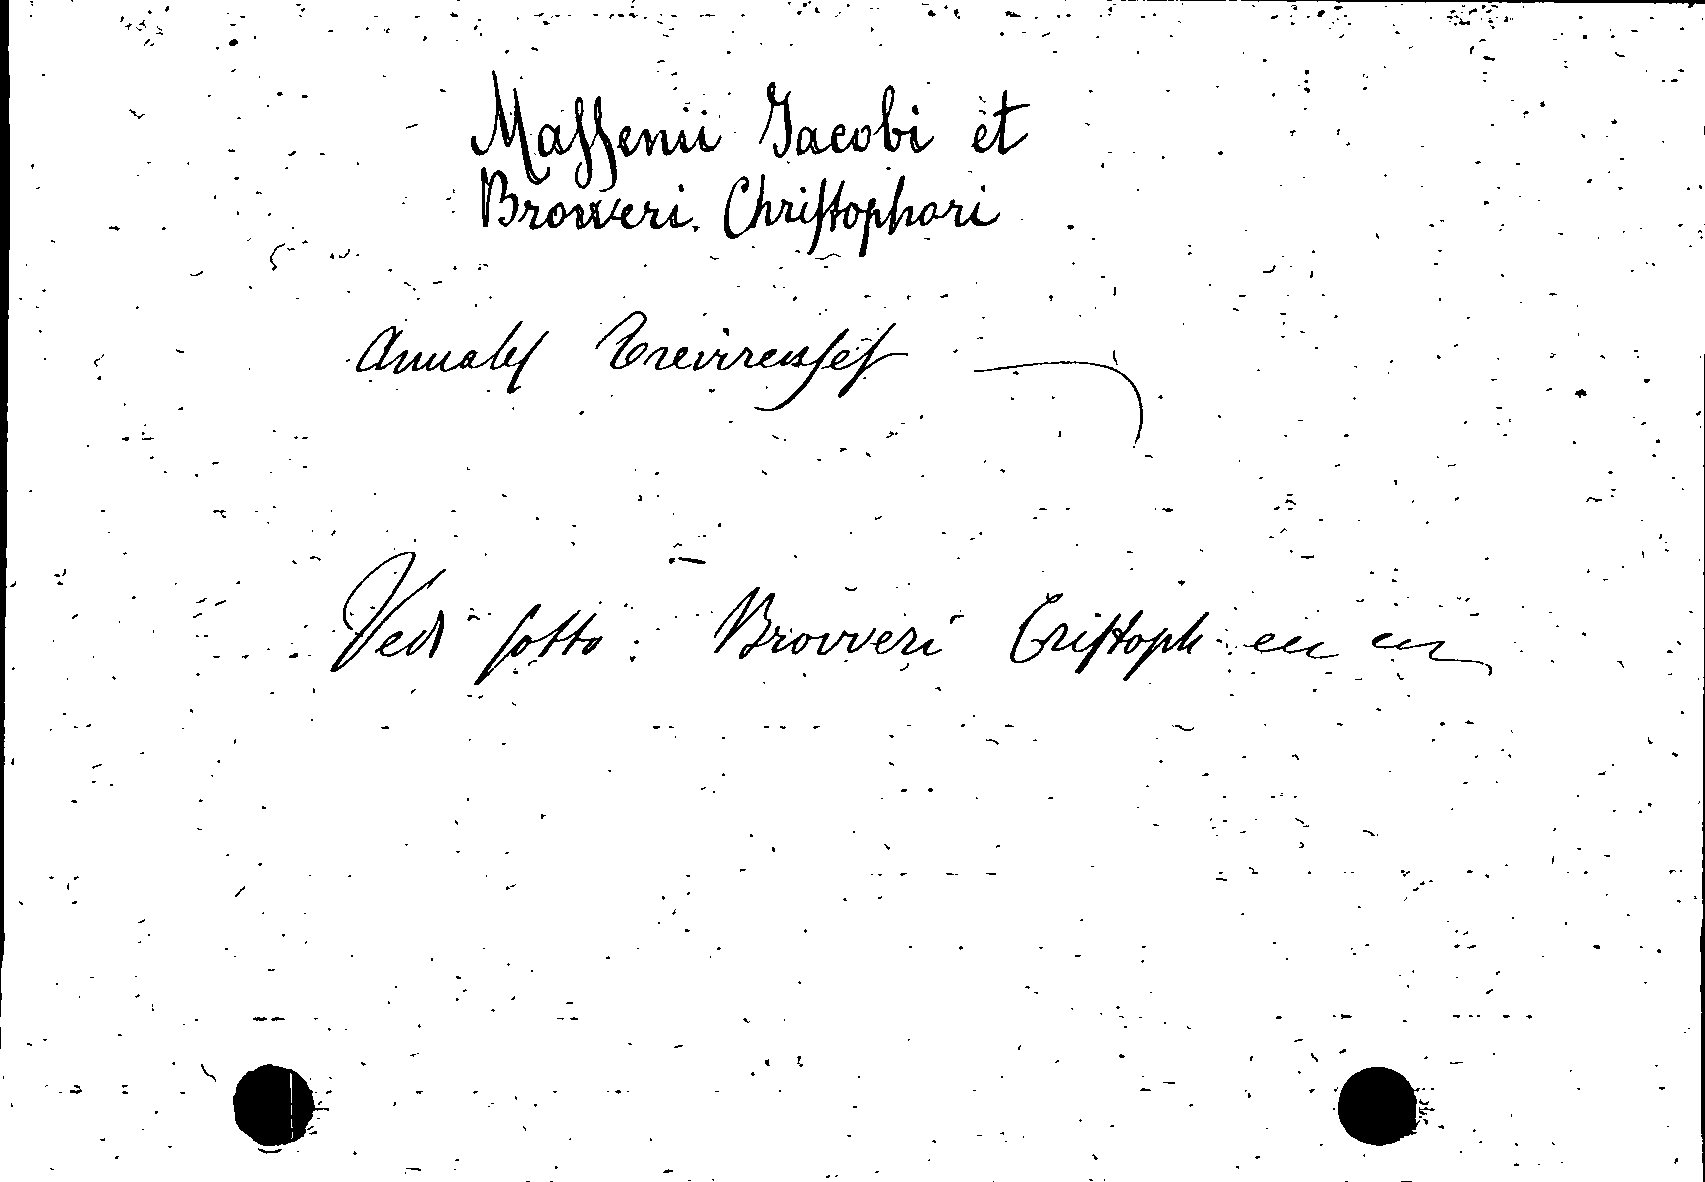 Massenii Jacobi et
Broweri. Christophori
Annales Trevirenses
Vedi sotto: Brovveri Cristoph